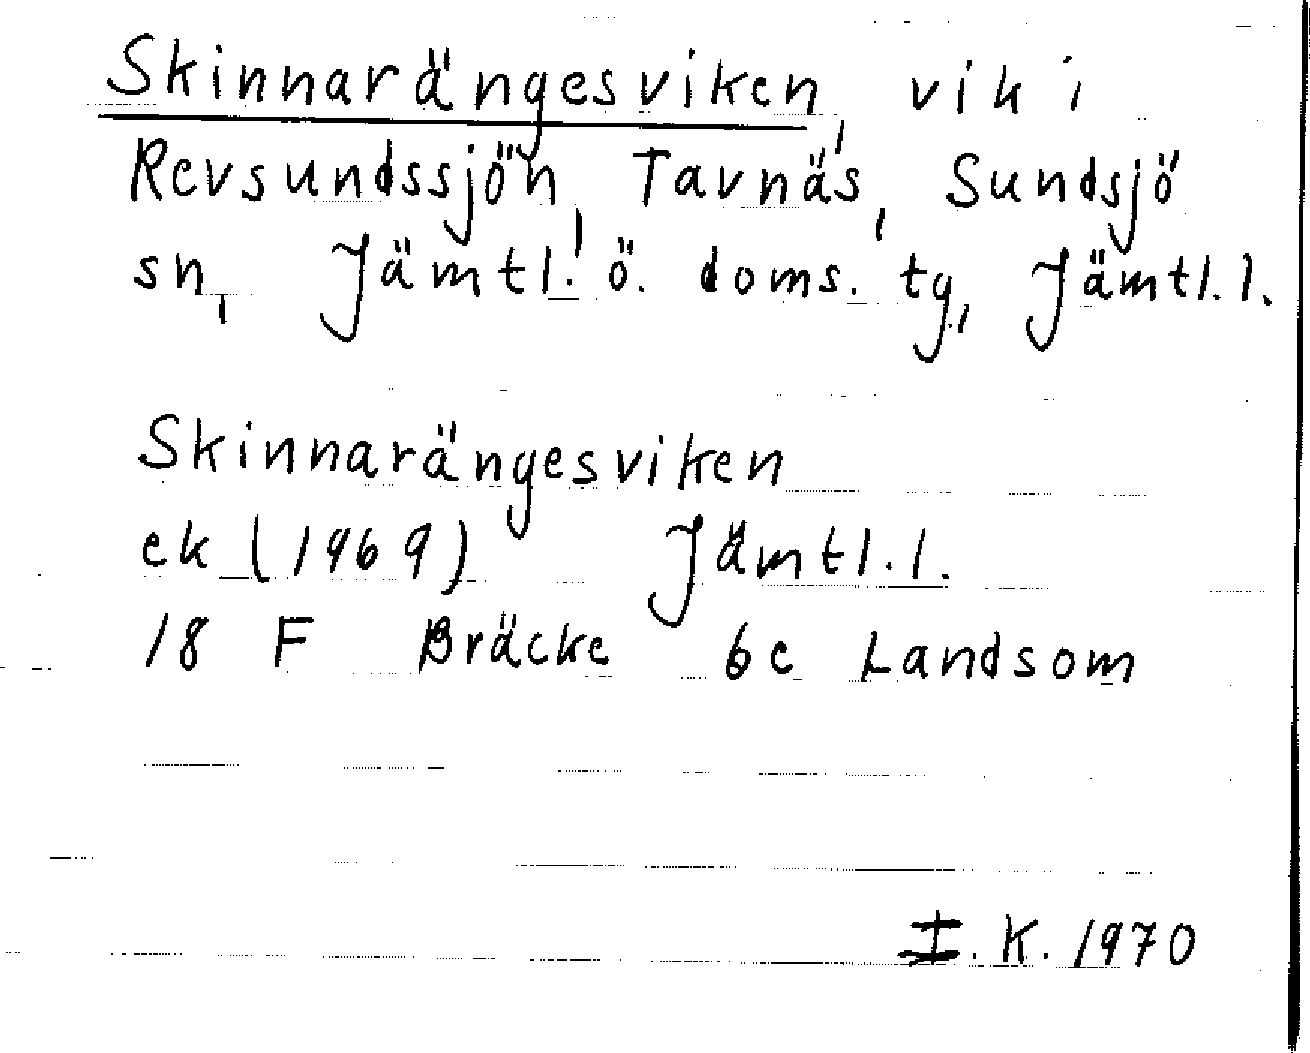 Skinnarängesviken, vik i
Revsundssjön, Tavnäs, Sundsjö
sn, Jämtl. ö. doms. tg, Jämtl. l.
Skinnarängesviken
ek (1969) Jämtl. l.
18 F Bräcke 6c Landsom
I. K. 1970